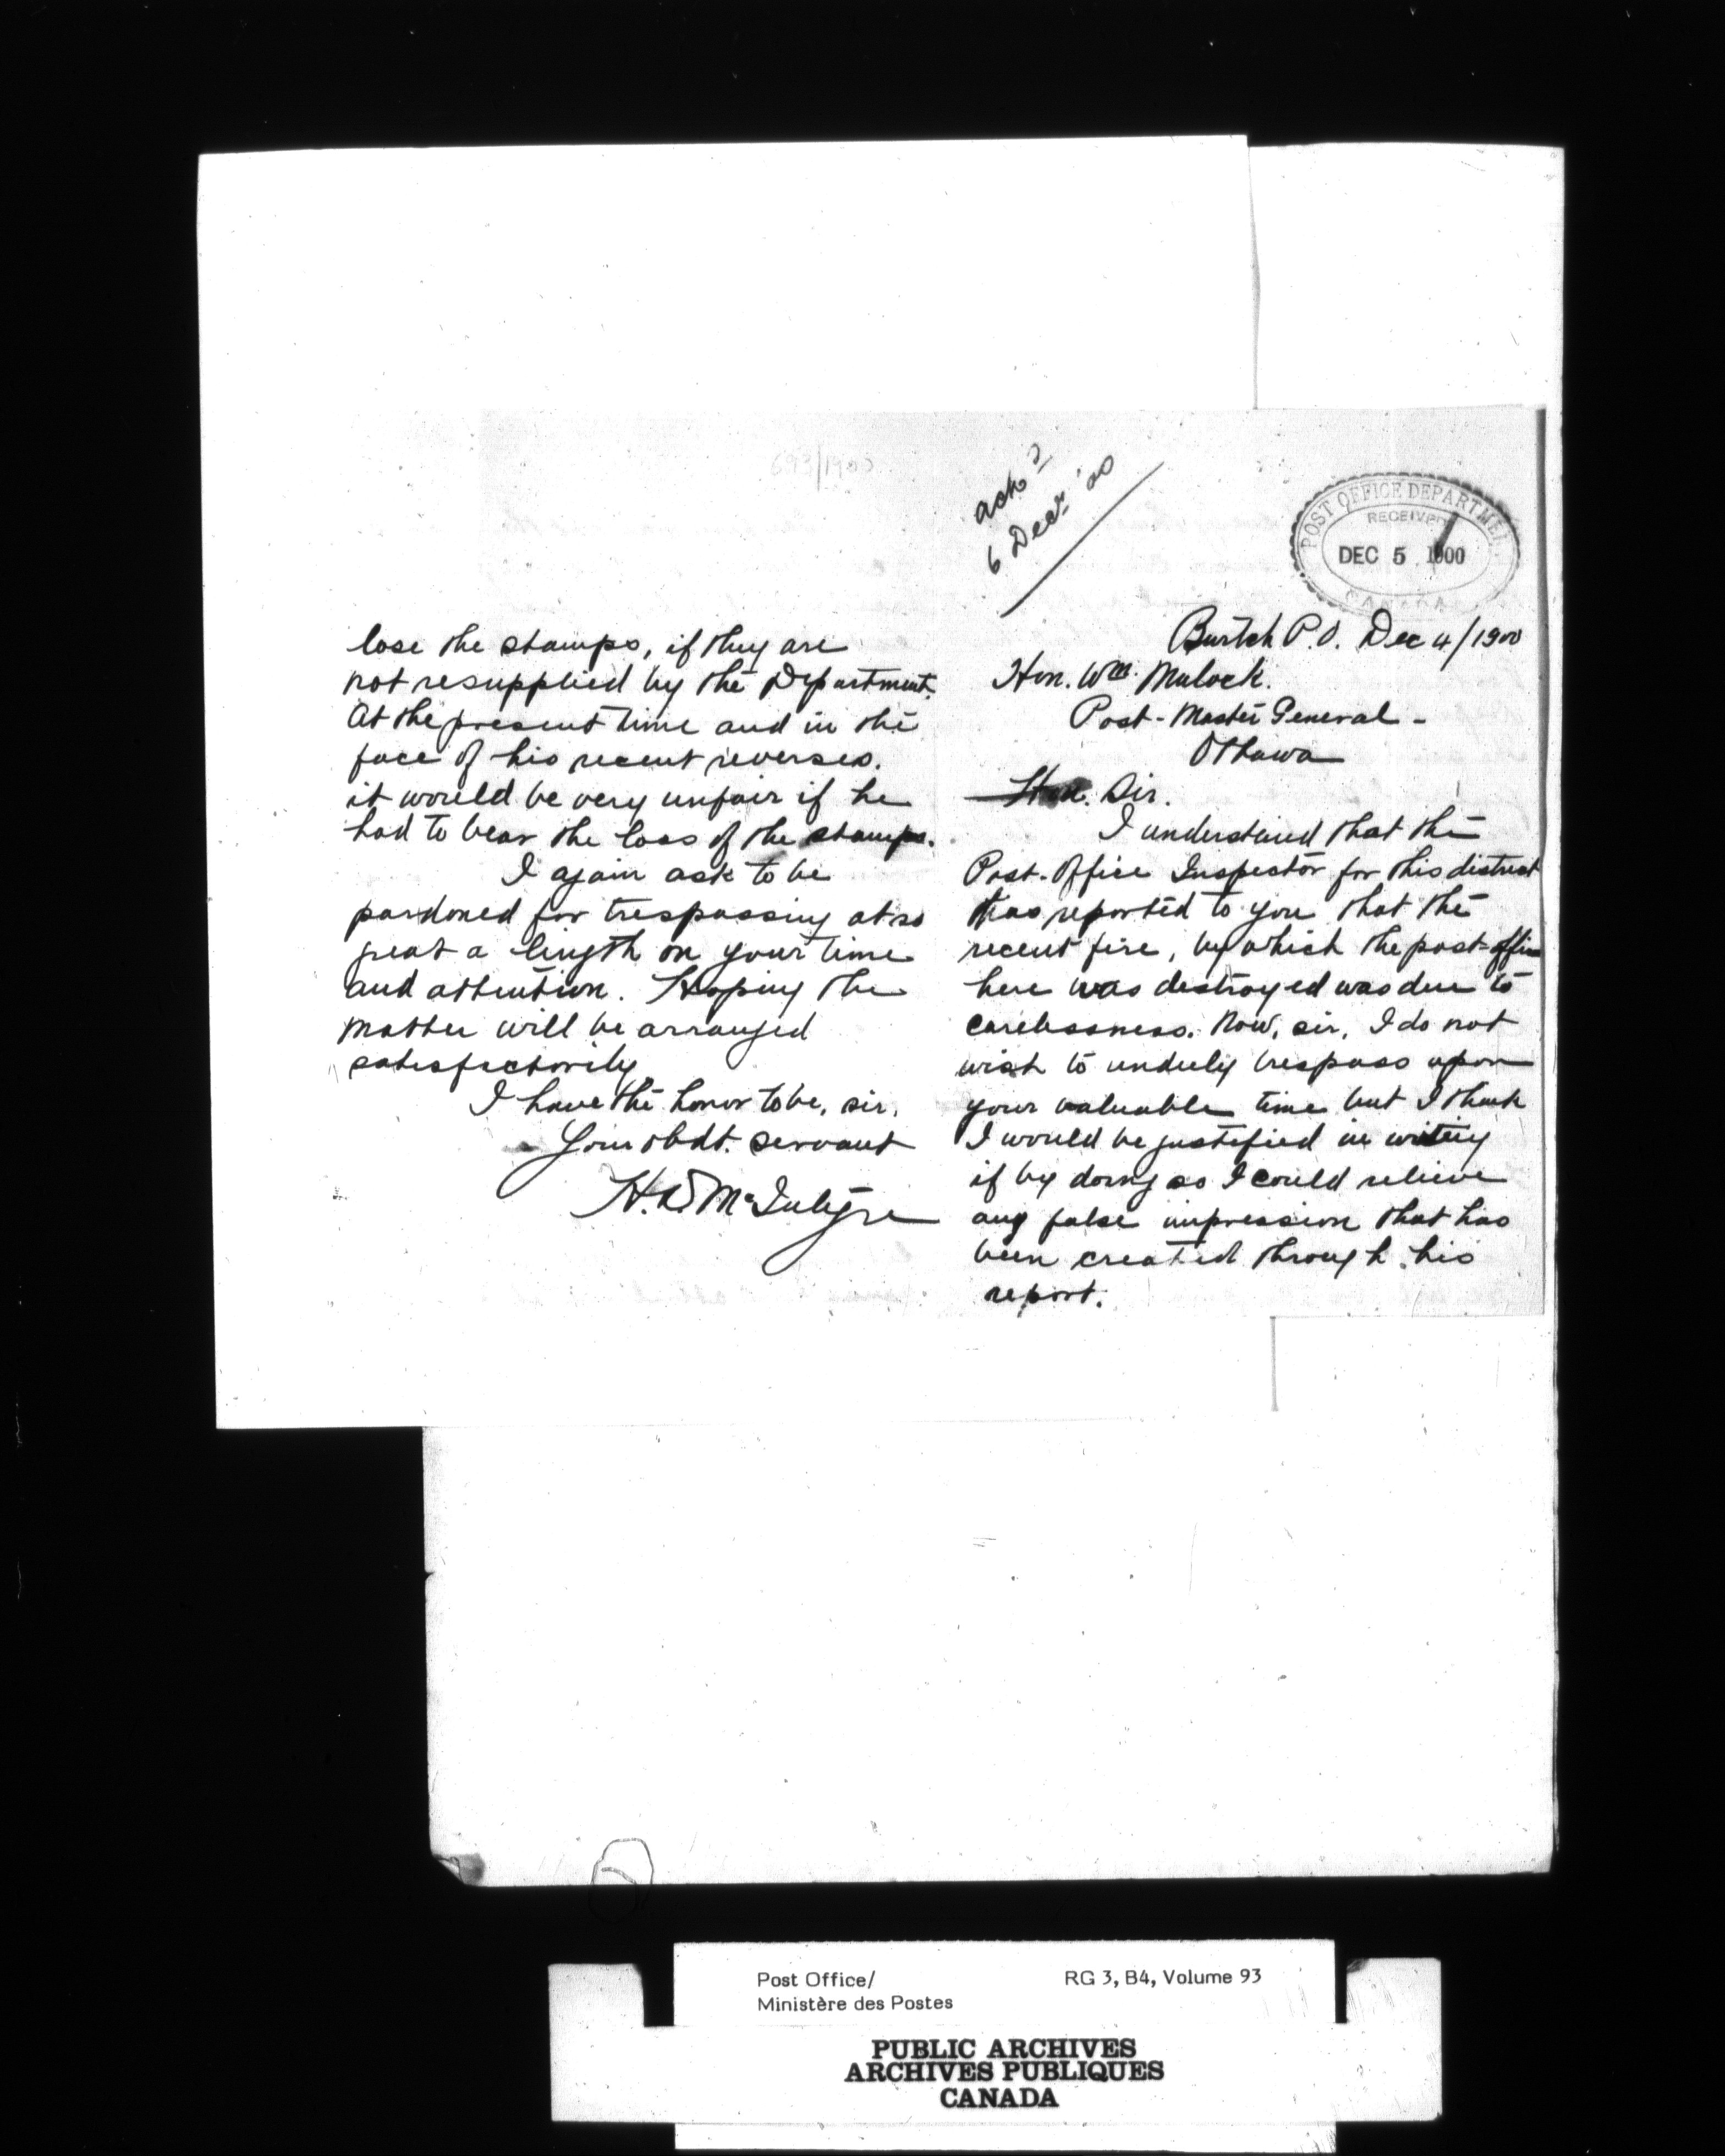 693/1900
ackd
6 Decr '00
POST OFFICE DEPARTMENT
RECEIVED
DEC 5 1900
CANADA
Burtch P.O. Dec 4/1900
Hon. Wm. Mulock.
Post-Master General -
Ottawa
Hon. Sir.
I understand that the
Post-Office Inspector for this district
has reported to you that the
recent fire, by which the post-office
here was destroyed was due to
carelessness. Now, sir, I do not
wish to unduly trespass upon
your valuable time but I think
I would be justified in writing
if by doing so I could relieve
any false impression that has
been created through his
report.
lose the stamps, if they are
not resupplied by the Department.
At the present time and in the
face of his recent reverses.
it would be very unfair if he
had to bear the loss of the stamps.
I again ask to be
pardoned for trespassing at so
great a length on your time
and attention. Hoping the
matter will be arranged
satisfactorily
I have the honor to be, sir,
Your obdt. servant
H. W. McIntyre
Post Office/
Ministère des Postes
RG 3, B4, Volume 93
PUBLIC ARCHIVES
ARCHIVES PUBLIQUES
CANADA